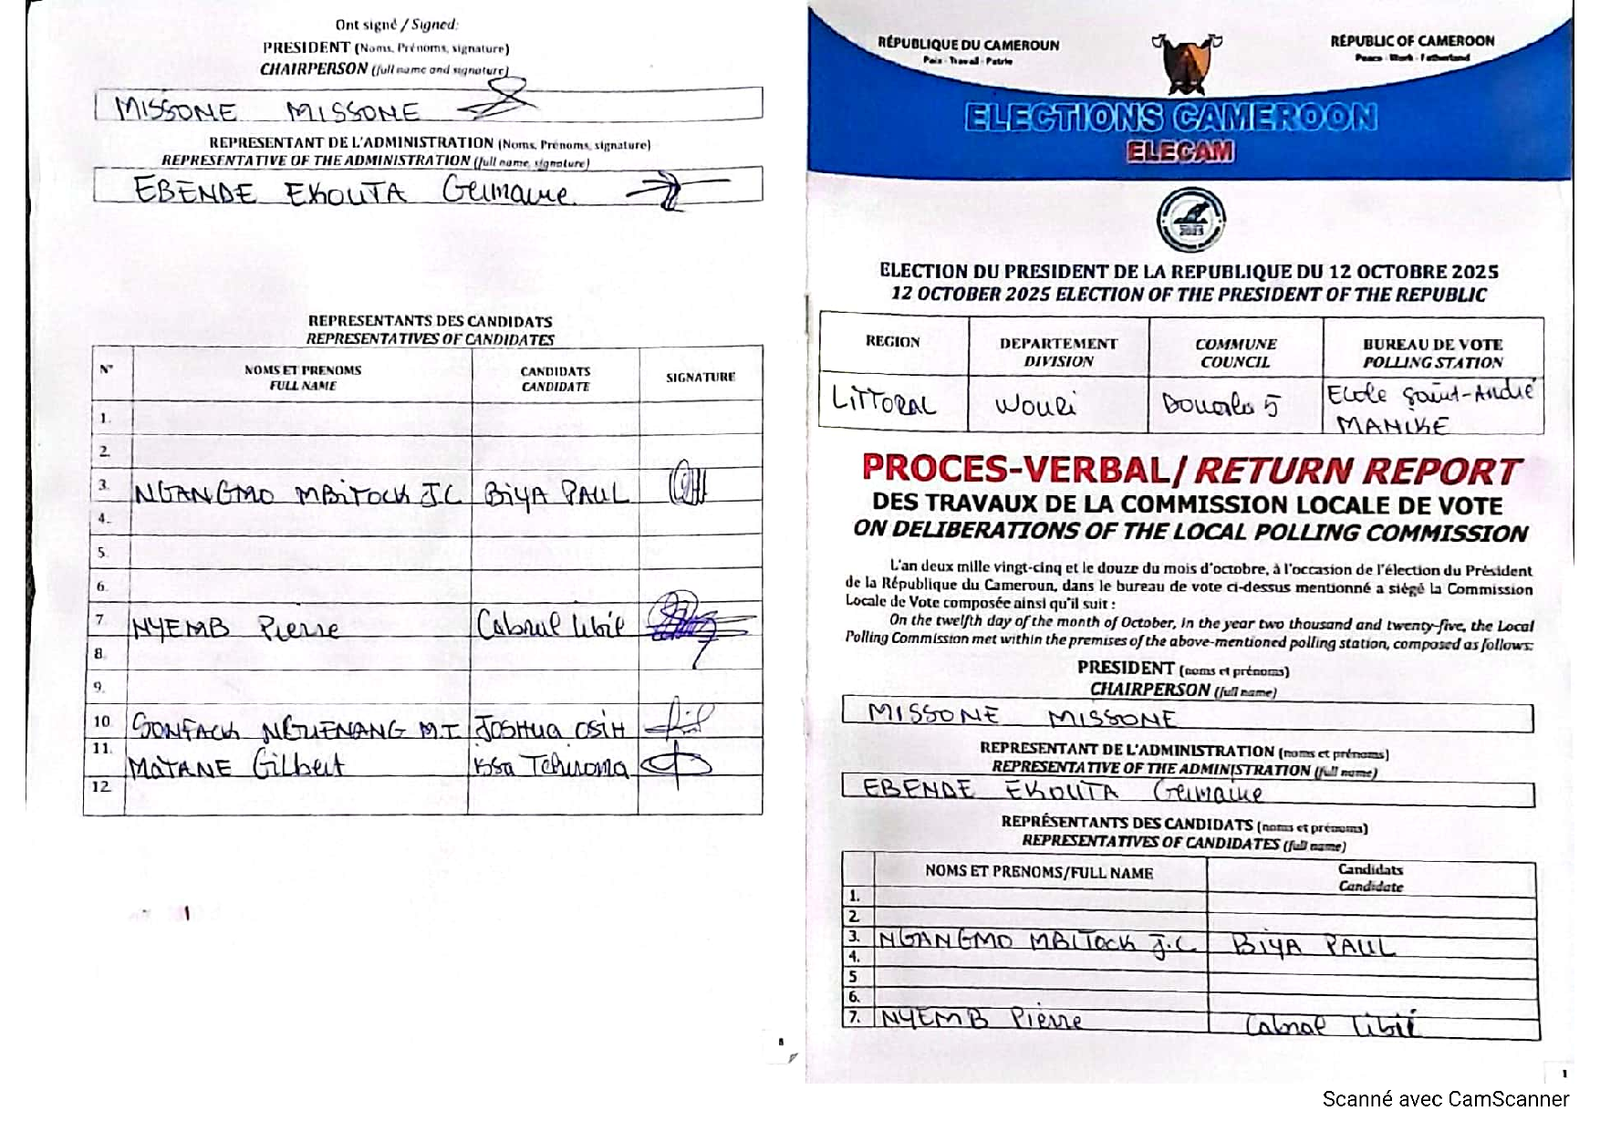 Ont signé / Signed:
PRESIDENT (Noms, Prénoms, signature)
CHAIRPERSON (full name and signature)
MISSONE MISSONE
REPRESENTANT DE L'ADMINISTRATION (Noms, Prénoms, signature)
REPRESENTATIVE OF THE ADMINISTRATION (full name, signature)
EBENDE EKOUTA Germaine
REPRESENTANTS DES CANDIDATS
REPRESENTATIVES OF CANDIDATES
N° NOMS ET PRENOMS CANDIDATS SIGNATURE
FULL NAME CANDIDATE
1.
2.
3. NGANGMO MBITOCK J.C BIYA PAUL
4.
5.
6.
7. NYEMB Pierre Cabral Libii
8.
9.
10. SONFACK NGUENANG M.I JOSHUA OSIH
11. MATANE Gilbert Issa Tchiroma
12.
8
RÉPUBLIQUE DU CAMEROUN
Paix - Travail - Patrie
REPUBLIC OF CAMEROON
Peace - Work - Fatherland
ELECTIONS CAMEROON
ELECAM
2025
ELECTION DU PRESIDENT DE LA REPUBLIQUE DU 12 OCTOBRE 2025
12 OCTOBER 2025 ELECTION OF THE PRESIDENT OF THE REPUBLIC
REGION DEPARTEMENT COMMUNE BUREAU DE VOTE
DIVISION COUNCIL POLLING STATION
LITTORAL Wouri Douala 5 Ecole Saint-André
MANIKE
PROCES-VERBAL / RETURN REPORT
DES TRAVAUX DE LA COMMISSION LOCALE DE VOTE
ON DELIBERATIONS OF THE LOCAL POLLING COMMISSION
L'an deux mille vingt-cinq et le douze du mois d'octobre, à l'occasion de l'élection du Président
de la République du Cameroun, dans le bureau de vote ci-dessus mentionné a siégé la Commission
Locale de Vote composée ainsi qu'il suit :
On the twelfth day of the month of October, in the year two thousand and twenty-five, the Local
Polling Commission met within the premises of the above-mentioned polling station, composed as follows:
PRESIDENT (noms et prénoms)
CHAIRPERSON (full name)
MISSONE MISSONE
REPRESENTANT DE L'ADMINISTRATION (noms et prénoms)
REPRESENTATIVE OF THE ADMINISTRATION (full name)
EBENDE EKOUTA Germaine
REPRÉSENTANTS DES CANDIDATS (noms et prénoms)
REPRESENTATIVES OF CANDIDATES (full name)
NOMS ET PRENOMS/FULL NAME Candidats
Candidate
1.
2
3. NGANGMO MBITOCK J.C BIYA PAUL
4.
5
6.
7. NYEMB Pierre Cabral Libii
1
Scanné avec CamScanner